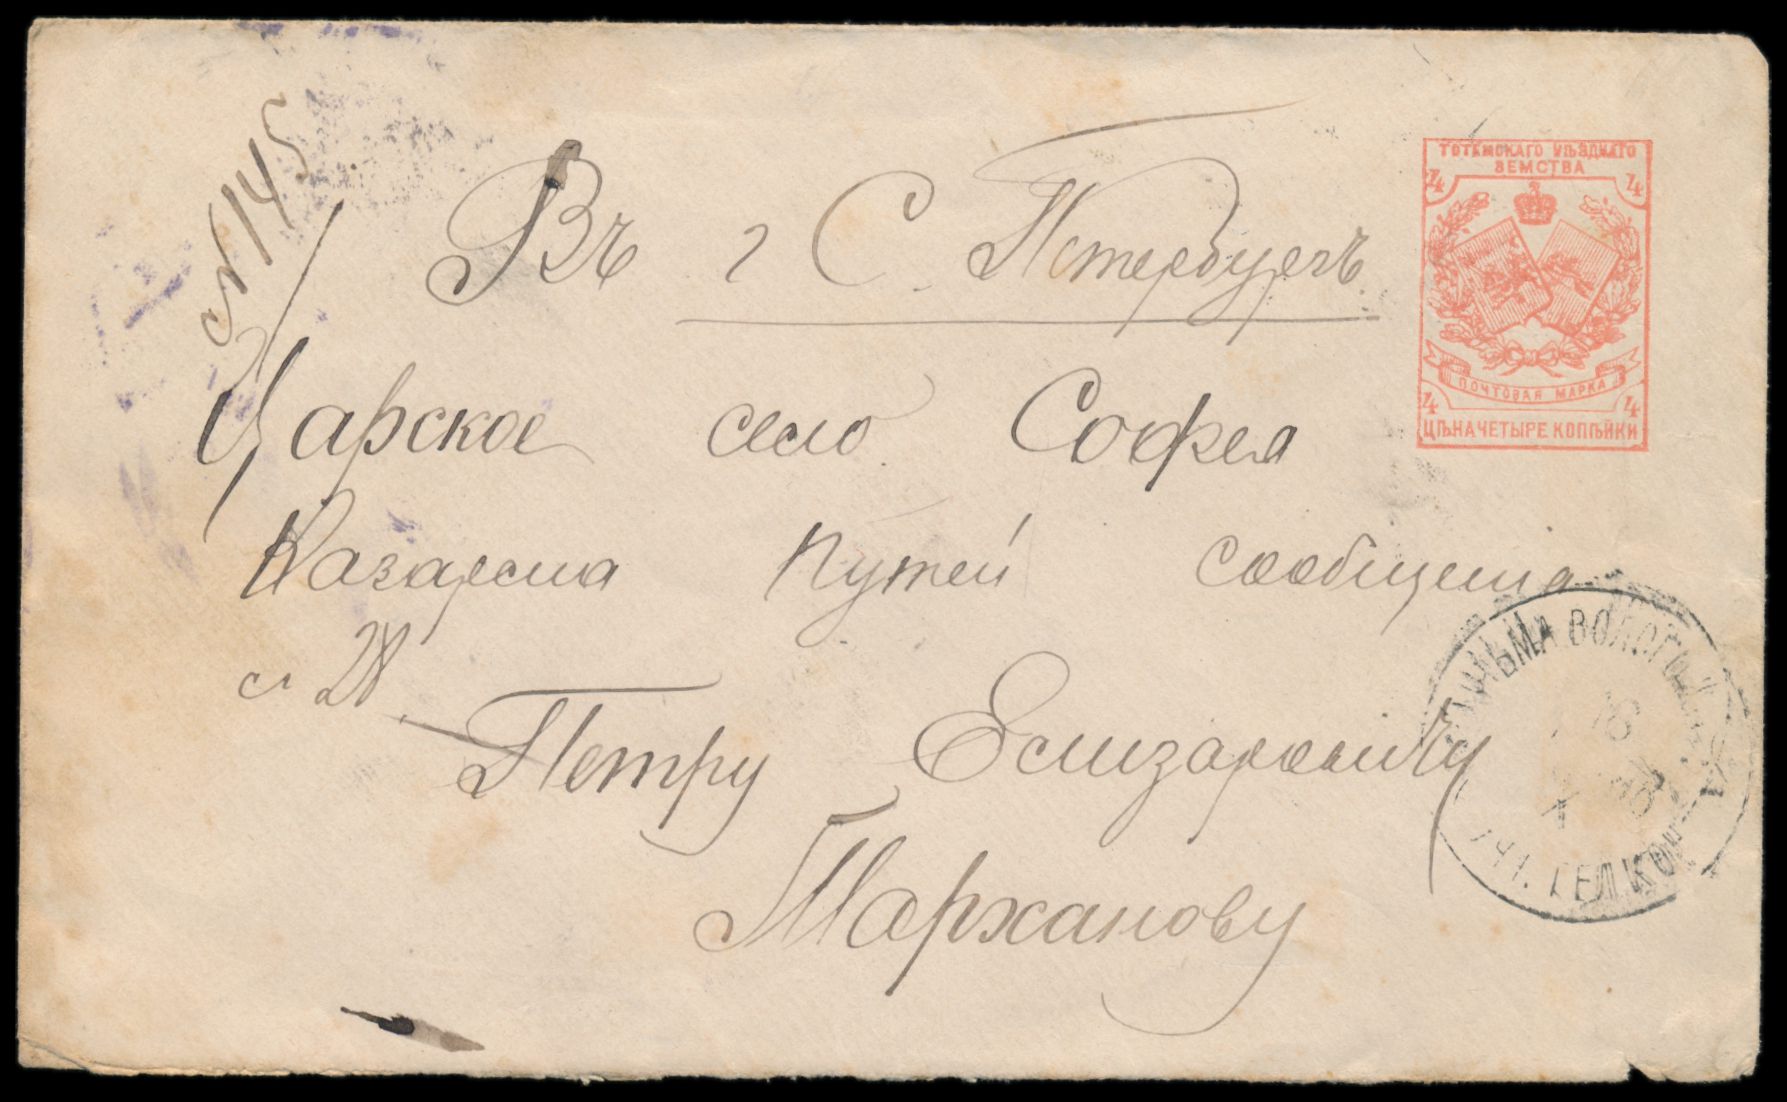 № 145
Въ г С. Петербургъ
Царское село София
Казарма Путей сообщения
Петру Елизаровичу
Тарханову
ТОТЕМСКАГО УѢЗДНАГО
ЗЕМСТВА
4 4
ПОЧТОВАЯ МАРКА
4 4
ЦѢНА ЧЕТЫРЕ КОПѢЙКИ
ТОТЬМА ВОЛОГОД.